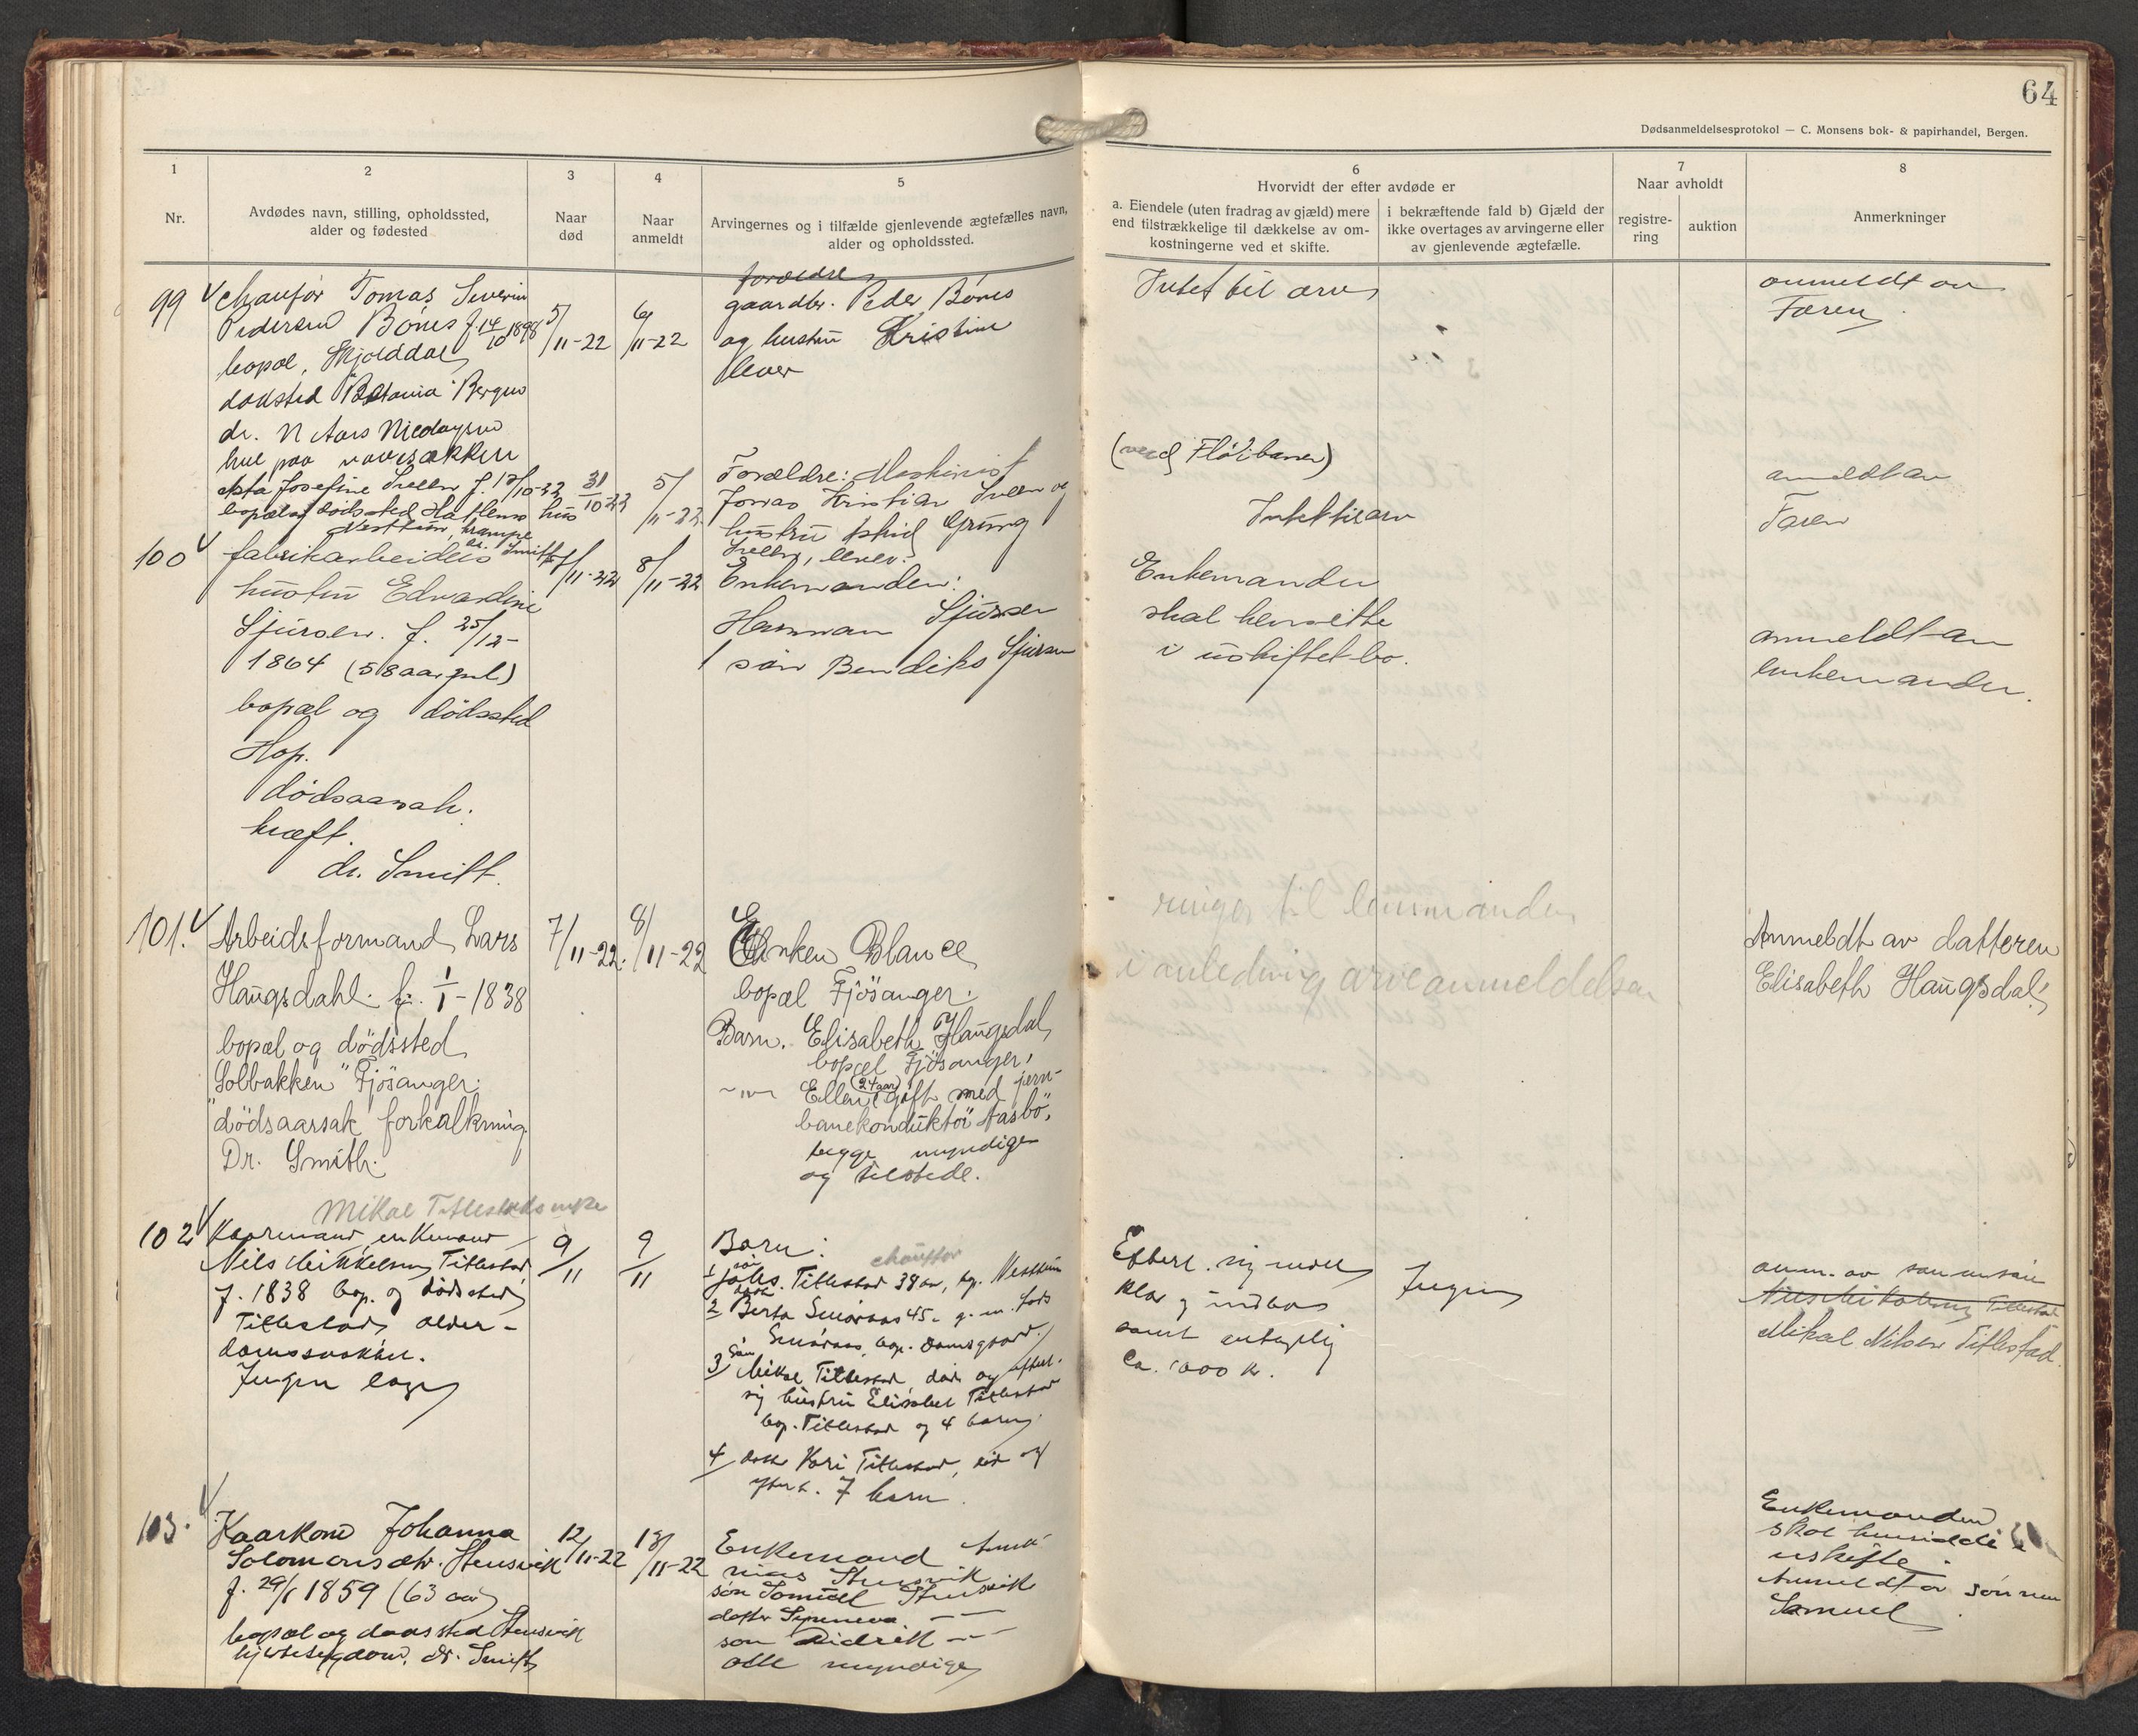 64
Dødsanmeldelsesprotokol — C. Monsens bok- & papirhandel, Bergen.
1
2
3
4
5
6
7
8
Nr.
Avdødes navn, stilling, opholdssted,
alder og fødested
Naar
død
Naar
anmeldt
Arvingernes og i tilfælde gjenlevende ægtefælles navn,
alder og opholdssted.
Hvorvidt der efter avdøde er
a. Eiendele (uten fradrag av gjæld) mere
end tilstrækkelige til dækkelse av om-
kostningerne ved et skifte.
i bekræftende fald b) Gjæld der
ikke overtages av arvingerne eller
av gjenlevende ægtefælle.
Naar avholdt
registre-
ring
auktion
Anmerkninger
99
Chaufør Tomas Severin
Pedersen Bönes f. 14/10 1898
bopæl, Skjolddal
dødssted "Betania" Bergen
dr. N Aars Nicolaysen
hul paa
5/11-22
6/11-22
forældre
gaardbr. Peder Bönes
og hustru Kristine
lever
Intet til arv
anmeldt av
Faren
Josefine
bopæl og dødssted
Nesttun, krampe
dr. Smith
31/10 22
5/11-22
Forældre: Maskinist
Jonas Kristian
hustru Grung
lever.
(ved Flöibanen)
Intet til arv
anmeldt av
Faren
100
fabrikarbeider
hustru Edvardine
Sjursen. f. 25/12-
1864 (58 aar gml)
bopæl og dödssted
Hop.
dödsaarsak.
kræft.
dr. Smith.
/11-22
8/11-22
Enkemanden:
Herman Sjursen
1 sön Bendiks Sjursen
Enkemanden
skal hensitte
i uskiftet bo.
anmeldt av
enkemanden.
101.
Arbeidsformand Lars
Haugsdahl. f. 1/1-1838
bopæl og dödssted
"Solbakken" Fjösanger.
dödsaarsak forkalkning
Dr. Smith.
7/11-22.
8/11-22
Enken Blance
bopæl Fjösanger.
Barn. Elisabeth Haugsdal,
bopæl Fjösanger,
Ellen (24 aar) gift med jern-
banekonduktör Aasbö,
begge myndige
og tilstede.
ringer til lensmanden
i anledning arveanmeldelsen
Anmeldt av datteren
Elisabeth Haugsdal
102
Mikal Titlestads enke
Kaarmand, enkemand
Nils Mikkelsen Titlestad
f. 1838 bop. og dödssted
Titlestad, alder-
domssvækkelse.
Ingen læge
9/11
9/11
Barn:
chauffør
1 sön Johs. Titlestad 38 aar, bp. Nesttun
2 datter Berta Smöraas 45 g. m. Lars
Smöraas, bop. Damsgaard.
3 sön Mikal Titlestad, död og efterl.
sig hustru Elisabet Titlestad
bop. Titlestad og 4 barn
4 datter Kari Titlestad, död og
efterl. 7 barn.
Efterl. sig
klær og indbo
samt
Ca. 1000 kr.
Ingen
anm. av sønnesön
Nils Mikalsen Titlestad
Mikal Nilsen Titlestad.
103.
Kaarkone Johanna
Salomonsdtr. Stensvik
f. 29/ 1859 (63 aar)
bopæl og dødssted Stensvik
hjertesygdom. dr. Smith
12/11-22
13/11-22
Enkemand
Stensvik
sön Samuel Stensvik
datter
sön Didrik
alle myndige
Enkemanden
skal hensidde i
uskifte.
Anmeldt av sönnen
Samuel